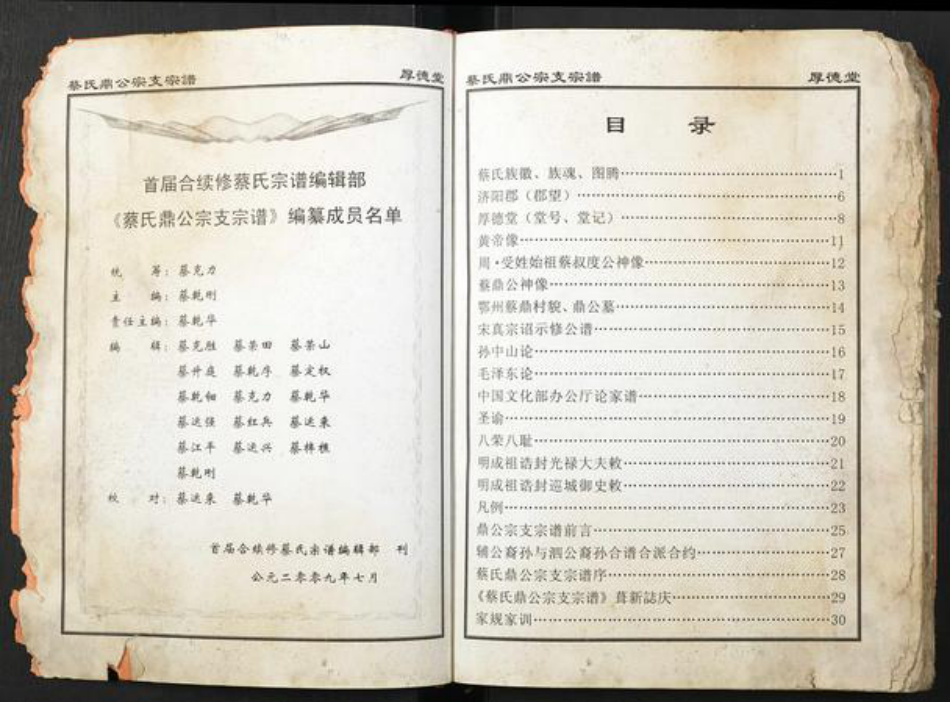 蔡氏鼎公宗支宗譜 厚德堂
首届合续修蔡氏宗谱编辑部
《蔡氏鼎公宗支宗谱》编纂成员名单
统 筹：蔡克力
主 编：蔡乾刚
责任主编：蔡乾华
编 辑：蔡克胜 蔡荣田 蔡荣山
蔡升庭 蔡乾序 蔡定权
蔡乾钿 蔡克力 蔡乾华
蔡运强 蔡红兵 蔡运来
蔡江平 蔡运兴 蔡樟樵
蔡乾刚
校 对：蔡运来 蔡乾华
首届合续修蔡氏宗谱编辑部 刊
公元二零零九年七月
蔡氏鼎公宗支宗譜 厚德堂
目 录
蔡氏族徽、族魂、图腾……1
济阳郡（郡望）……6
厚德堂（堂号、堂记）……8
黄帝像……11
周·受姓始祖蔡叔度公神像……12
蔡鼎公神像……13
鄂州蔡鼎村貌、鼎公墓……14
宋真宗诏示修公谱……15
孙中山论……16
毛泽东论……17
中国文化部办公厅论家谱……18
圣谕……19
八荣八耻……20
明成祖诰封光禄大夫敕……21
明成祖诰封巡城御史敕……22
凡例……23
鼎公宗支宗谱前言……25
辅公裔孙与泗公裔孙合谱合派合约……27
蔡氏鼎公宗支宗谱序……28
《蔡氏鼎公宗支宗谱》葺新誌庆……29
家规家训……30